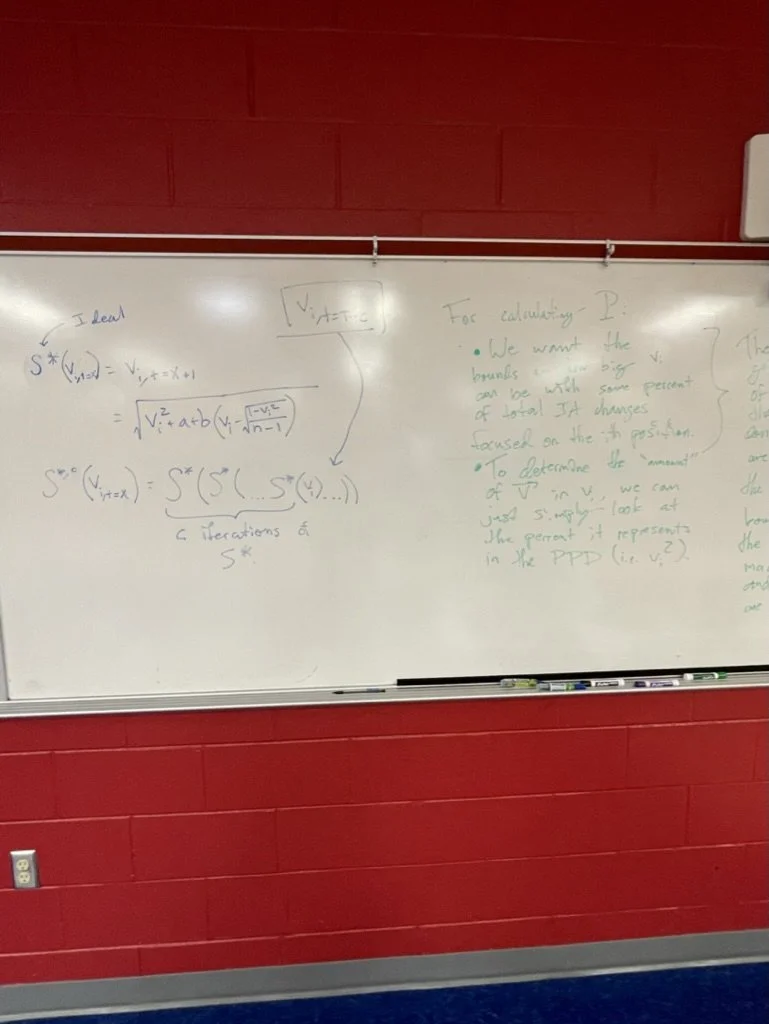 Ideal
S*(v_{i,t=x}) = v_{i,t=x+1}
= √(v_i² + a + b(v_i - √((1-v_i²)/(n-1))))
S*,c(v_{i,t=x}) = S*(S*(...S*(v_i)...))
c iterations of
S*
v_{i,t=T-c}
For calculating P:
• We want the
bounds how big v_i
can be with some percent
of total IA changes
focused on the ith position.
• To determine the "amount"
of V in v_i, we can
just simply look at
the percent it represents
in the PPD (i.e. v_i²)
of
are
the
the
and
are